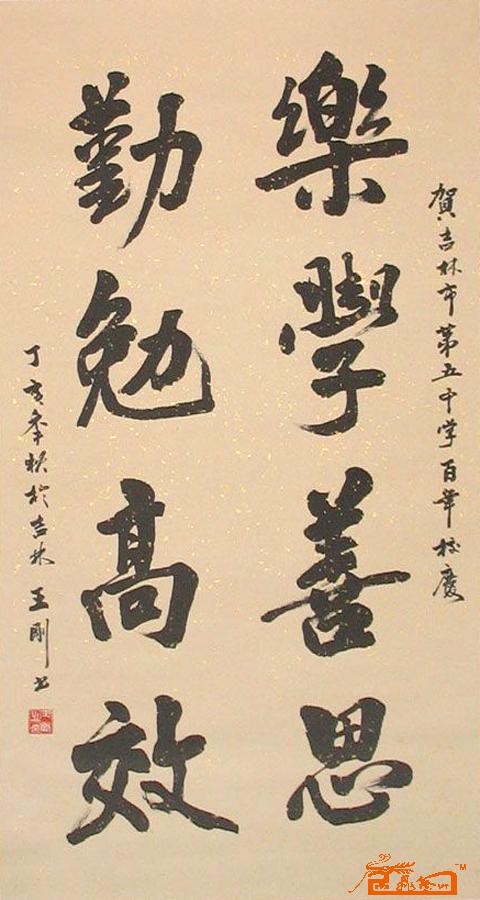 賀吉林市第五中学百年校慶
樂學善思
勤勉髙效
丁亥年秋於吉林王剛书